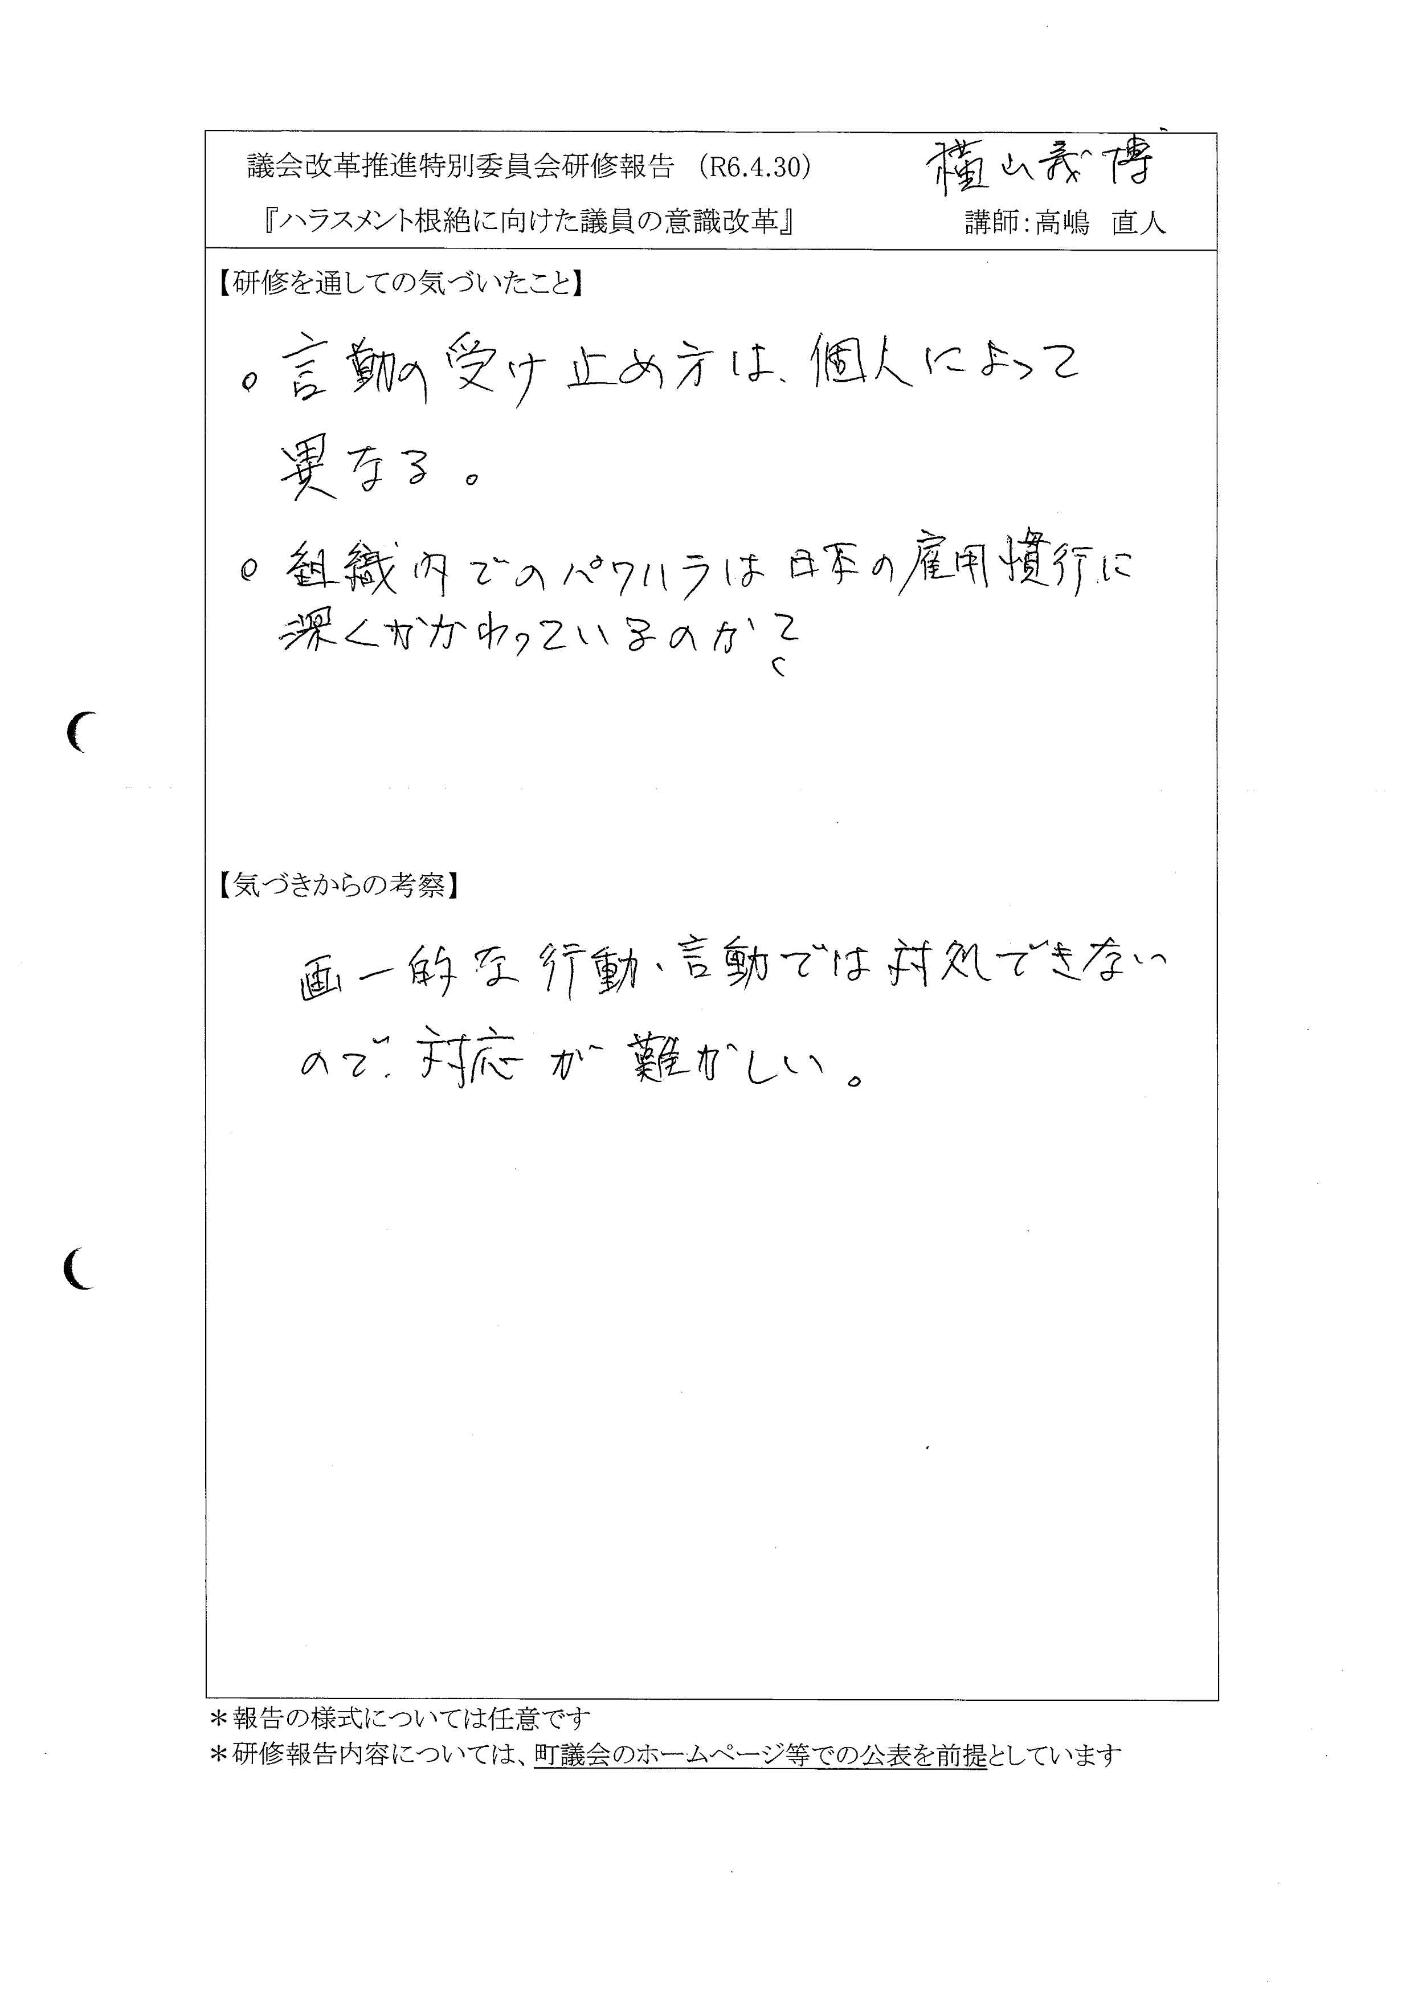 議会改革推進特別委員会研修報告 (R6.4.30) 横山義博
『ハラスメント根絶に向けた議員の意識改革』 講師:高嶋 直人
【研修を通しての気づいたこと】
○ 言動の受け止め方は、個人によって
異なる。
○ 組織内でのパワハラは日本の雇用慣行に
深くかかわっているのか?
【気づきからの考察】
画一的な行動、言動では対処できない
ので、対応が難かしい。
*報告の様式については任意です
*研修報告内容については、町議会のホームページ等での公表を前提としています